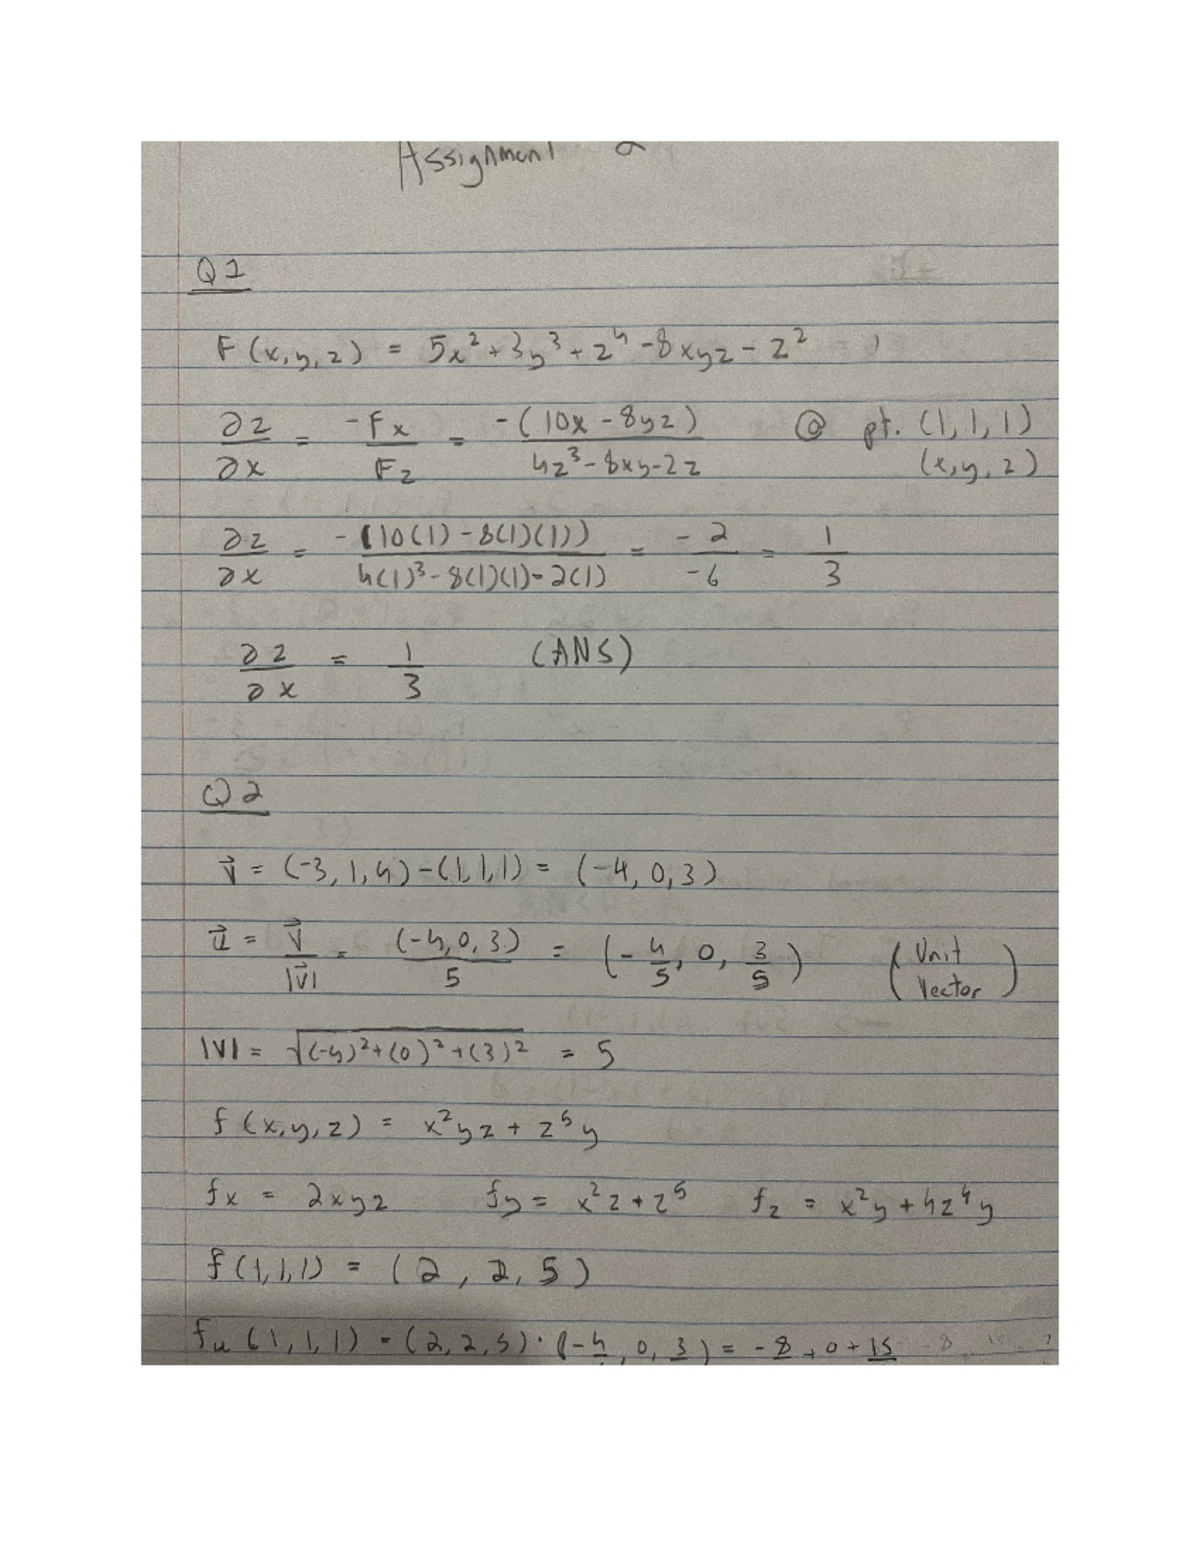 Assignment 2
Q1
F(x,y,z) = 5x² + 3y³ + z⁴ - 8xyz - z²
∂z/∂x = -Fx/Fz = -(10x - 8yz)/(4z³ - 8xy - 2z) @ pt. (1,1,1)
(x,y,z)
∂z/∂x = -(10(1) - 8(1)(1))/(4(1)³ - 8(1)(1) - 2(1)) = -2/-6 = 1/3
∂z/∂x = 1/3 (ANS)
Q2
v⃗ = (-3,1,4) - (1,1,1) = (-4,0,3)
u⃗ = v⃗/|v⃗| = (-4,0,3)/5 = (-4/5, 0, 3/5) (Unit Vector)
|V| = √((-4)² + (0)² + (3)²) = 5
f(x,y,z) = x²yz + z⁵y
fx = 2xyz fy = x²z + z⁵ fz = x²y + 4z⁴y
f(1,1,1) = (2, 2, 5)
fu(1,1,1) = (2,2,5)·(-4, 0, 3) = -8 + 0 + 15